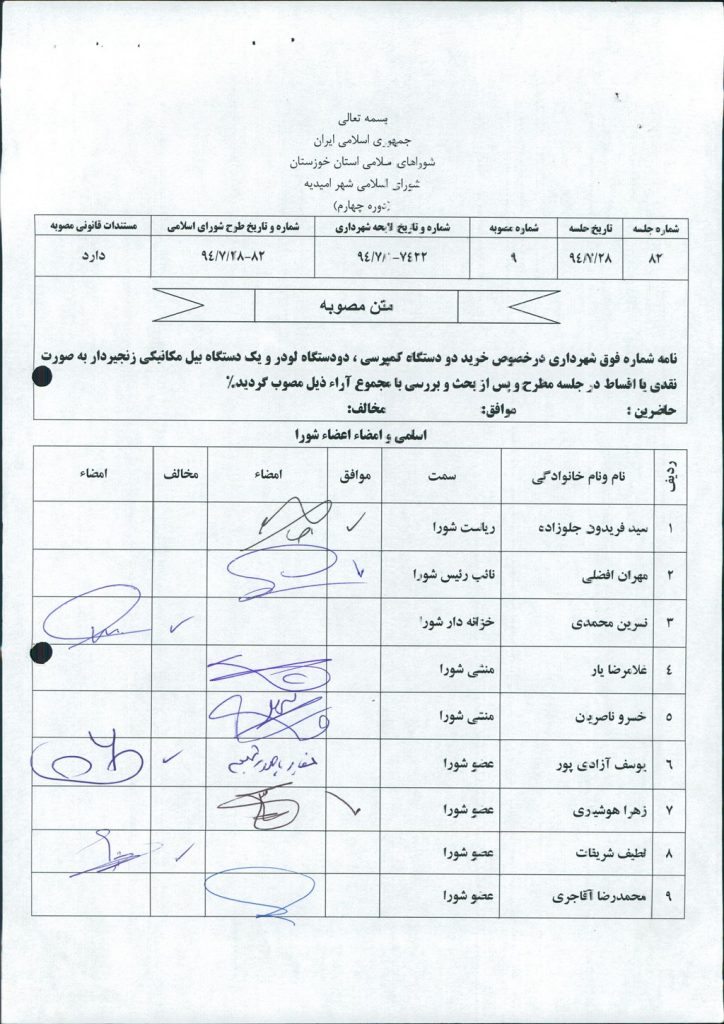 بسمه تعالی
جمهوری اسلامی ایران
شوراهای اسلامی استان خوزستان
شورای اسلامی شهر امیدیه
(دوره چهارم)
شماره جلسه تاریخ جلسه شماره مصوبه شماره و تاریخ لایحه شهرداری شماره و تاریخ طرح شورای اسلامی مستندات قانونی مصوبه
۸۲ ۹٤/۷/۲۸ ۹ ۷٤۲۲- ۹٤/۷/ ۸۲-۹٤/۷/۲۸ دارد
متن مصوبه
نامه شماره فوق شهرداری درخصوص خرید دو دستگاه کمپرسی ، دودستگاه لودر و یک دستگاه بیل مکانیکی زنجیردار به صورت
نقدی یا اقساط در جلسه مطرح و پس از بحث و بررسی با مجموع آراء ذیل مصوب گردید.٪
حاضرین : موافق: مخالف:
اسامی و امضاء اعضاء شورا
ردیف نام ونام خانوادگی سمت موافق امضاء مخالف امضاء
۱ سید فریدون جلوزاده ریاست شورا ✓
۲ مهران افضلی نائب رئیس شورا ✓
۳ نسرین محمدی خزانه دار شورا ✓
٤ غلامرضا یار منشی شورا
۵ خسرو ناصریان منشی شورا
٦ یوسف آزادی پور عضو شورا ✓
۷ زهرا هوشیاری عضو شورا ✓
۸ لطیف شریفات عضو شورا ✓
۹ محمدرضا آقاجری عضو شورا